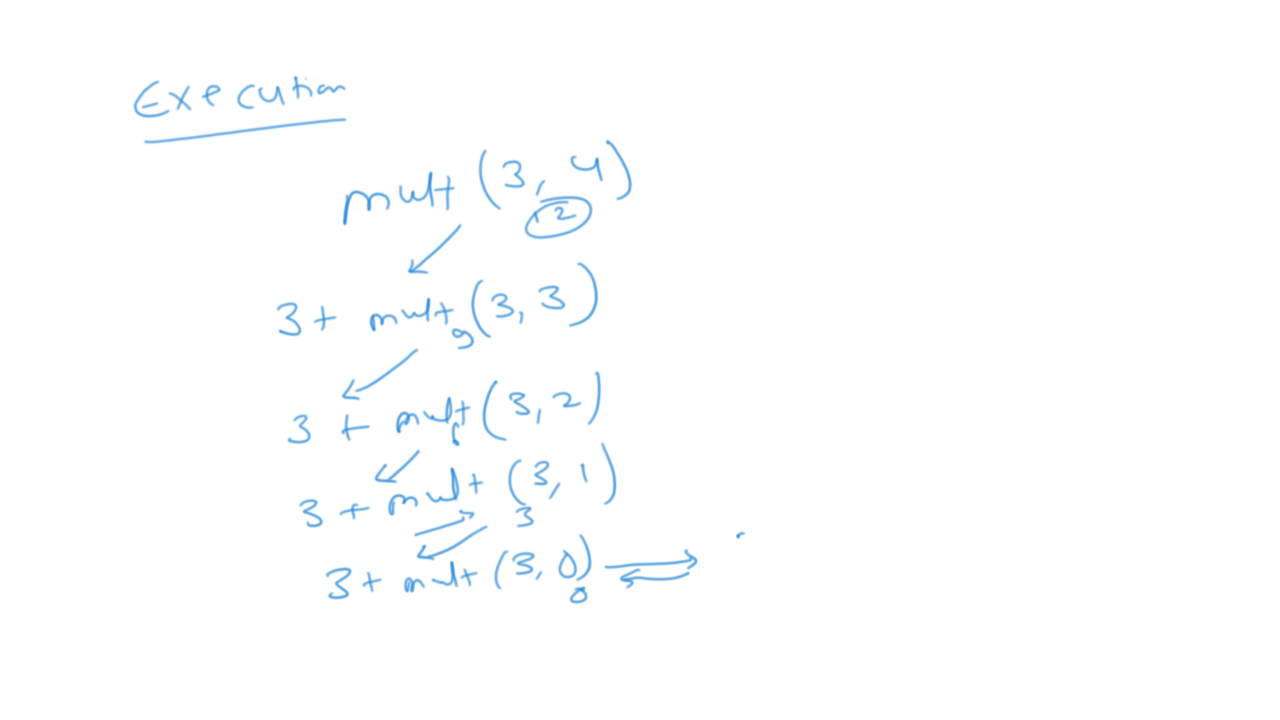 Execution
mult (3, 4)
12
3 + mult (3, 3)
9
3 + mult (3, 2)
6
3 + mult (3, 1)
3
3 + mult (3, 0)
0